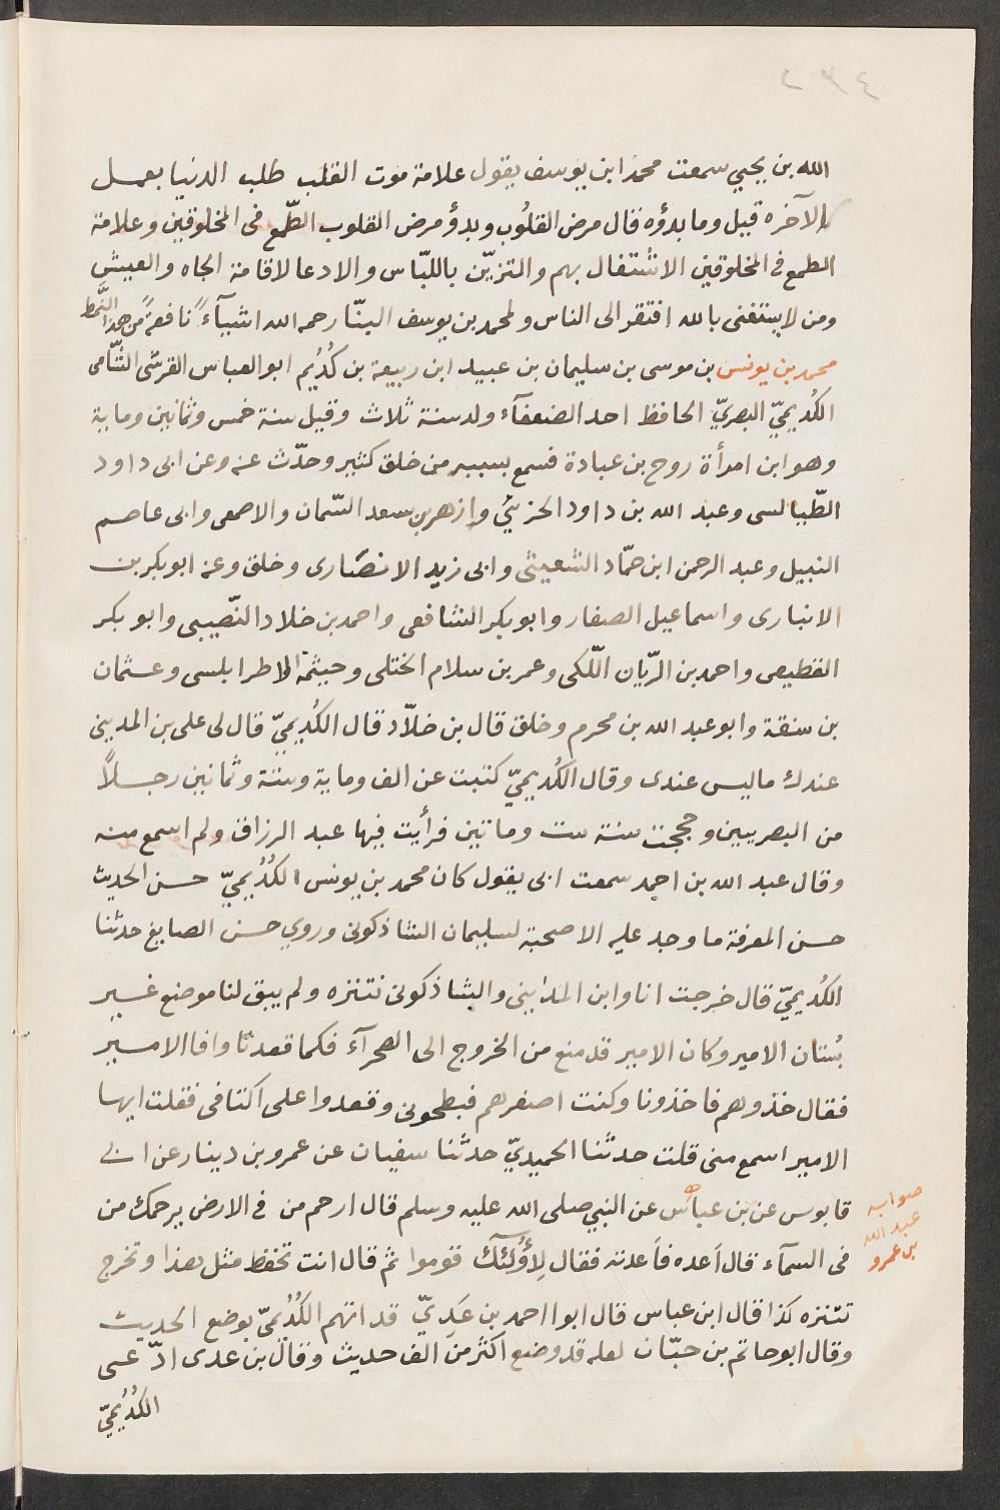 الله بن يحيي سمعت محمد ابن يوسف يقول علامة موت القلب طلب الدنيا بعمل
الآخره قيل وما بدؤه قال مرض القلُوب وبدؤ مرض القلوب الطّمع فى المخلوقين وعلامة
الطمع فى المخلوقين الاشتغال بهم والتزيّن باللبّاس والادعا لاقامة الجاه والعيش
ومن لا يستغنى بالله افتقر الى الناس ولمحمد بن يوسف البنّا رحمه الله اشيآءً نافعةً من هذا النَّمط
محمد بن يونس بن موسى بن سليمان بن عبيد ابن ربيعة بن كُدُيم ابو العباس القرشى الشّامى
الكُديميّ البصريّ الحافظ احد الضعفآء ولد سنة ثلاث وقيل سنة خمس وثمانين وماية
وهو ابن امرأة روح بن عبادة فسمع بسببه من خلق كثير وحدّث عنه وعن ابى داود
الطّيالسى وعبد الله بن داود الخريبي وازهر بن سعد السّمان والاصمعى وابى عاصم
النبيل وعبد الرحمن ابن حمّاد الشعيثى وابى زيد الانصَارى وخلق وعنه ابو بكر بن
الانبارى واسماعيل الصفار وابو بكر الشافعى واحمد بن خلاد النّصيبى وابو بكر
القطيعى واحمد بن الرّيان اللّكى وعمر بن سلام الختلى وخيثمة الاطرابلسى وعثمان
بن سنقة وابو عبد الله بن محرم وخلق قال بن خلاّد قال الكُديميّ قال لى على بن المدينى
عندك ما ليس عندى وقال الكُديميّ كتبت عن الف وماية وستة وثمانين رجلاً
من البصريين وحججت سنة ست وماتين فرأيت فيها عبد الرزاق ولم اسمع منه
وقال عبد الله بن احمد سمعت ابى يقول كان محمد بن يونس الكُدُيميّ حسن الحديث
حسن المعرفة ما وجد عليه الا صحبة لسليمان الشاذكونى وروي حسن الصايغ حدثنا
الكُديميّ قال خرجت انا وابن المداينى والشاذكونى نتنزه ولم يبق لنا موضع غير
بُستان الامير وكان الامير قد منع من الخروج الى الصحرآء فكما قعدنا وافا الامير
فقال خذوهم فاخذونا وكنت اصغرهم فبطحونى وقعدوا على اكتافى فقلت ايها
الامير اسمع منى قلت حدثنا الحميديّ حدثنا سفيان عن عمرو بن دينار عن ابي
قابوس عن بن عباس عن النبي صلى الله عليه وسلم قال ارحم من فى الارض يرحمك من
صوابه
عبد الله
بن عمرو
فى السمآء قال اَعده فاَعدته فقال لِأُولئك قوموا ثم قال انت تحفظ مثل هذا وتخرج
تتنزه كذا قال ابن عباس قال ابوا احمد بن عَدِيّ قد اتهم الكُدُيمىّ بوضع الحديث
وقال ابو حاتم بن حبّان لعله قد وضع اكثر من الف حديث وقال بن عدى ادّعى
الكُدُيميّ